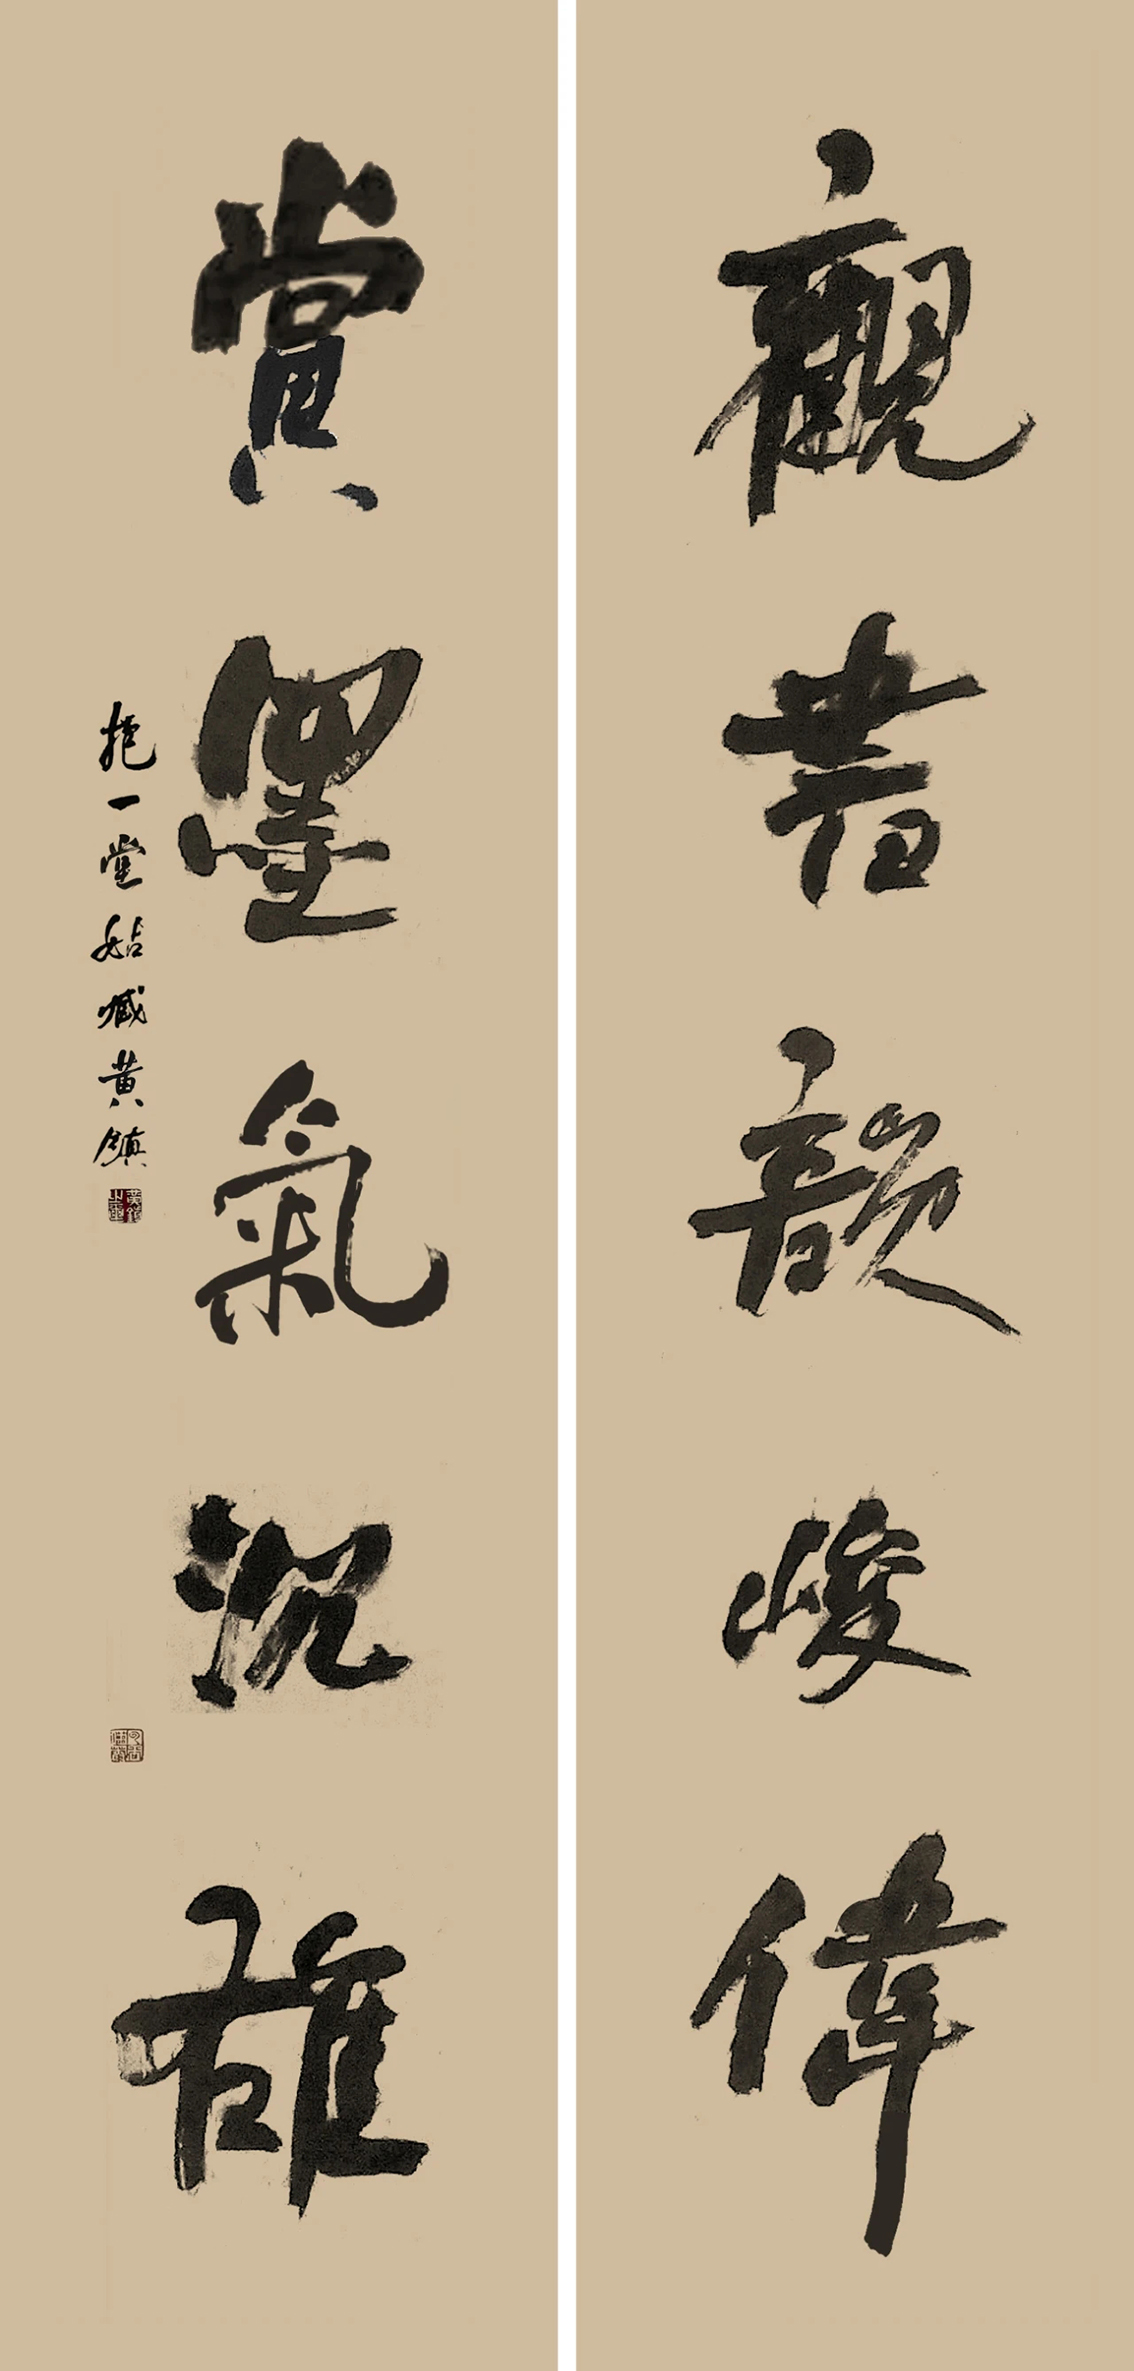 觀書韻峻偉
賞墨氣沉雄
抱一堂珍臧黄鎮